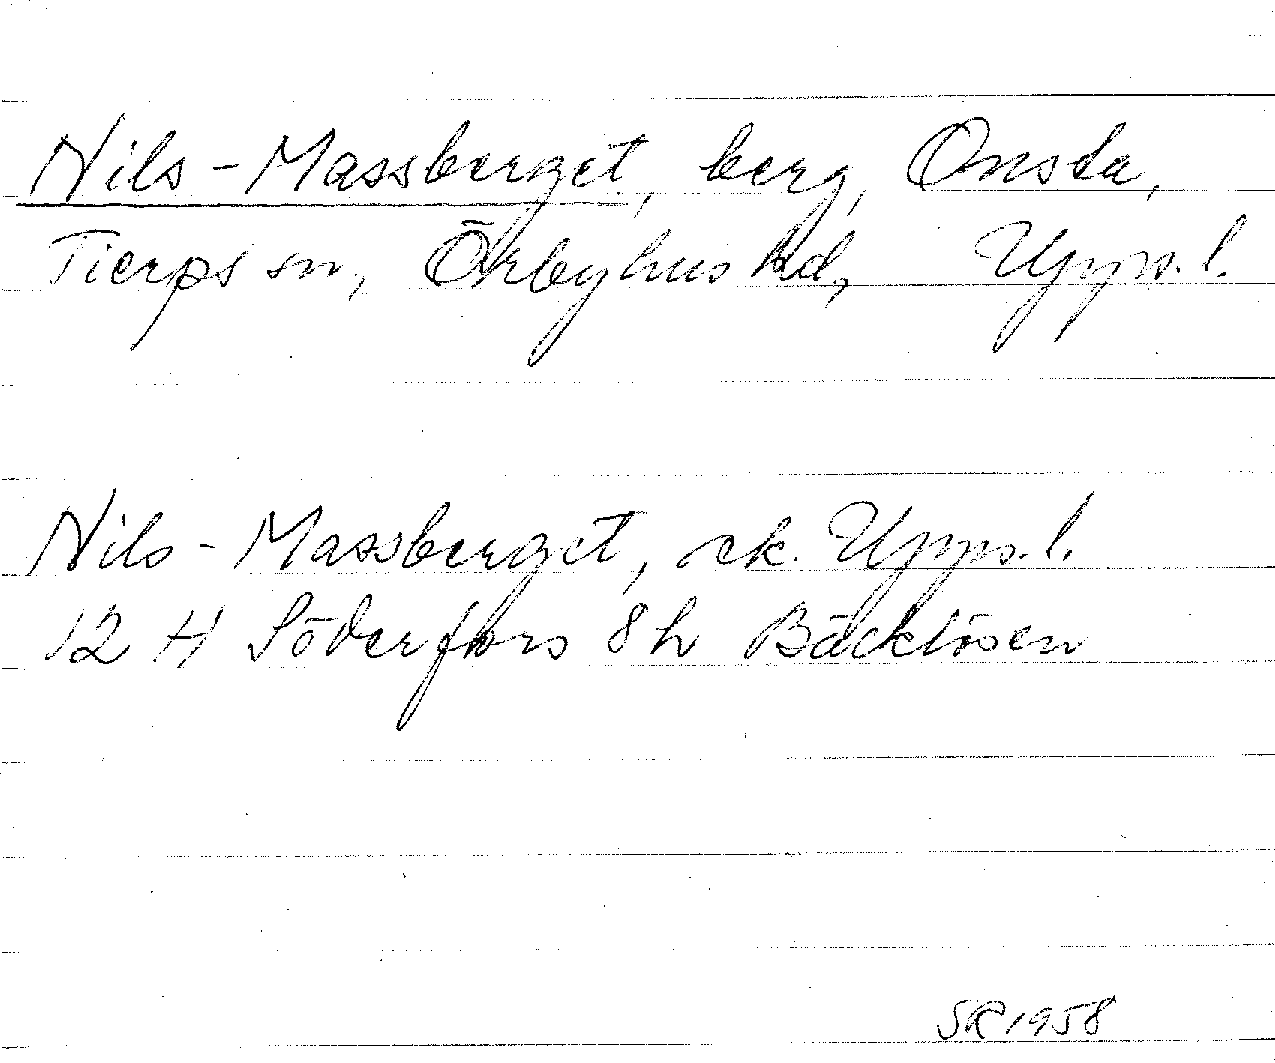 Nils-Massberget, berg, Onsta,
Tierps sn, Örbyhus hd, Upps.l.
Nils-Massberget, ek. Upps.l.
12 H Söderfors 8h Bäcklösen
SR 1958